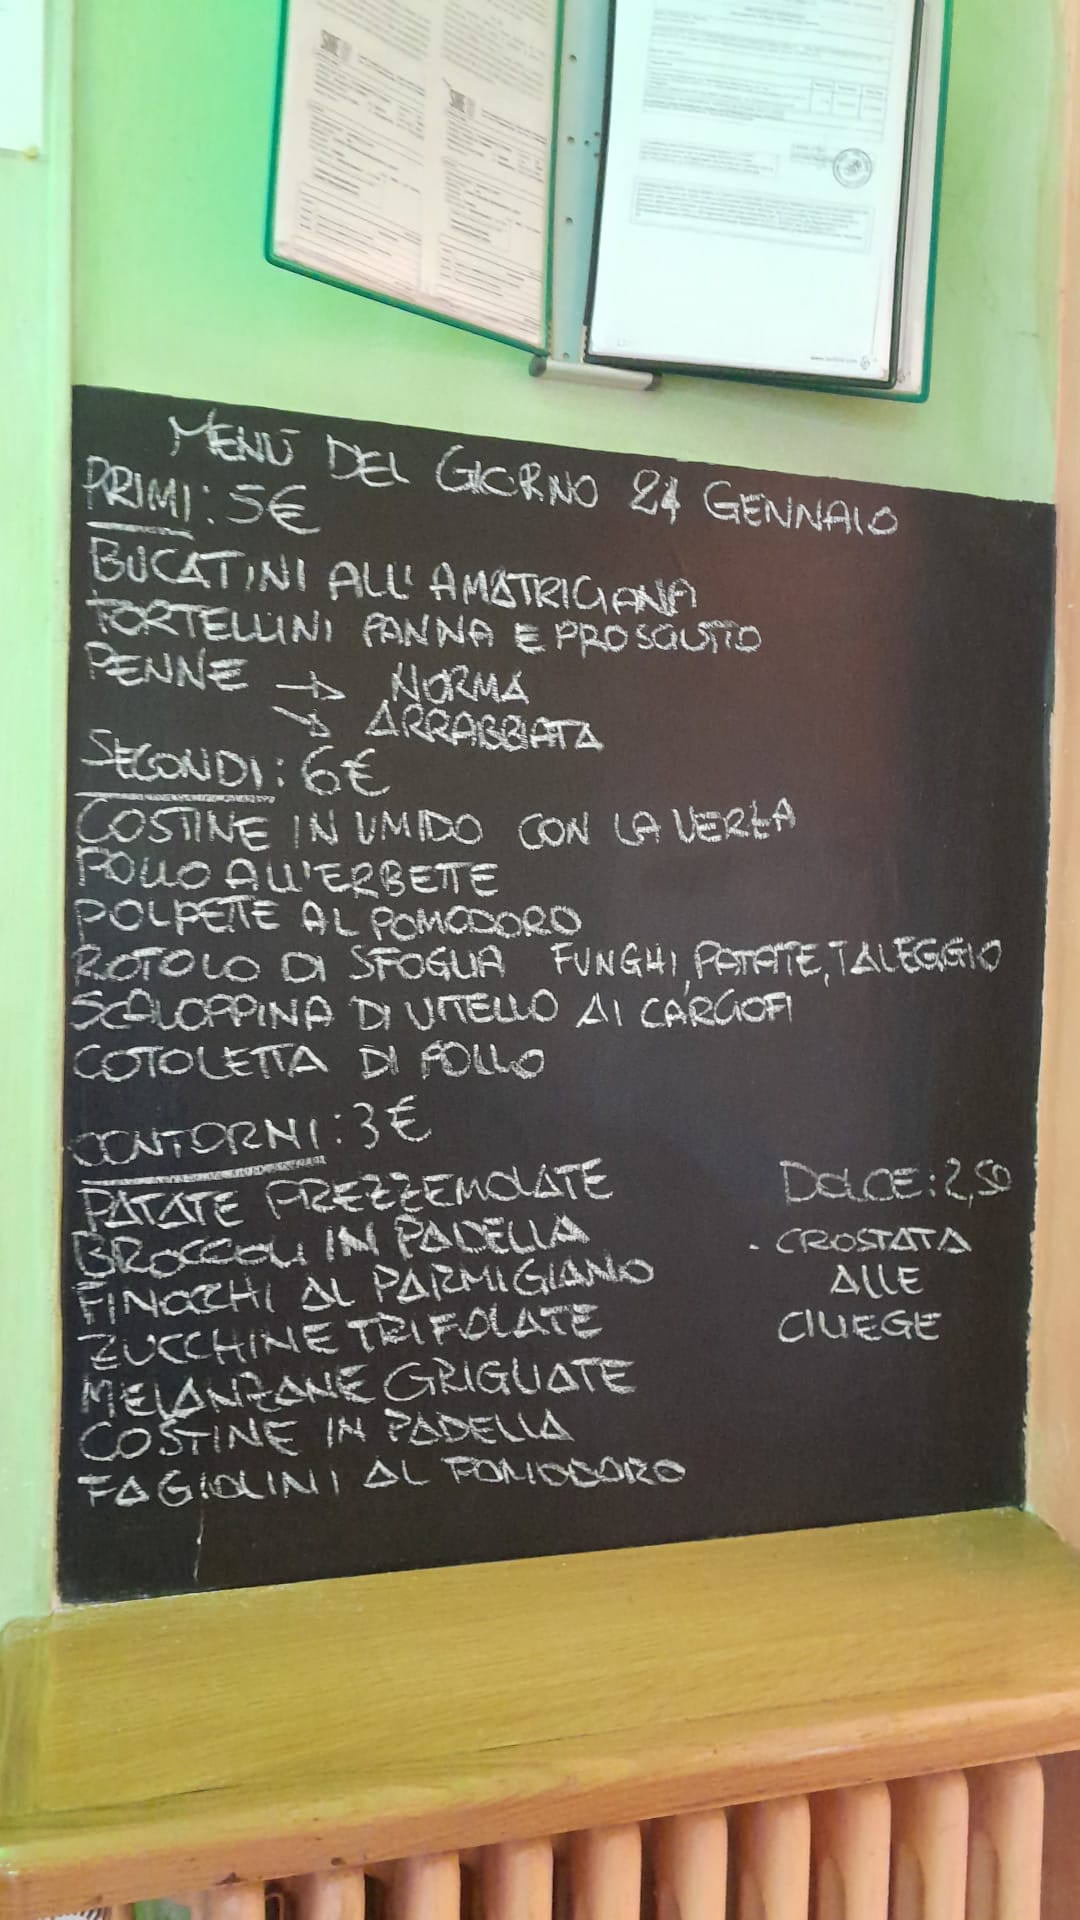 MENÙ DEL GIORNO 24 GENNAIO
PRIMI: 5€
BUCATINI ALL'AMATRICIANA
TORTELLINI PANNA E PROSCIUTTO
PENNE → NORMA
↘ ARRABBIATA
SECONDI: 6€
COSTINE IN UMIDO CON LA VERZA
POLLO ALL'ERBETTE
POLPETTE AL POMODORO
ROTOLO DI SFOGLIA FUNGHI, PATATE, TALEGGIO
SCALOPPINA DI VITELLO AI CARCIOFI
COTOLETTA DI POLLO
CONTORNI: 3€
PATATE PREZZEMOLATE
BROCCOLI IN PADELLA
FINOCCHI AL PARMIGIANO
ZUCCHINE TRIFOLATE
MELANZANE GRIGLIATE
COSTINE IN PADELLA
FAGIOLINI AL POMODORO
DOLCE: 2,50
. CROSTATA
ALLE
CILIEGE